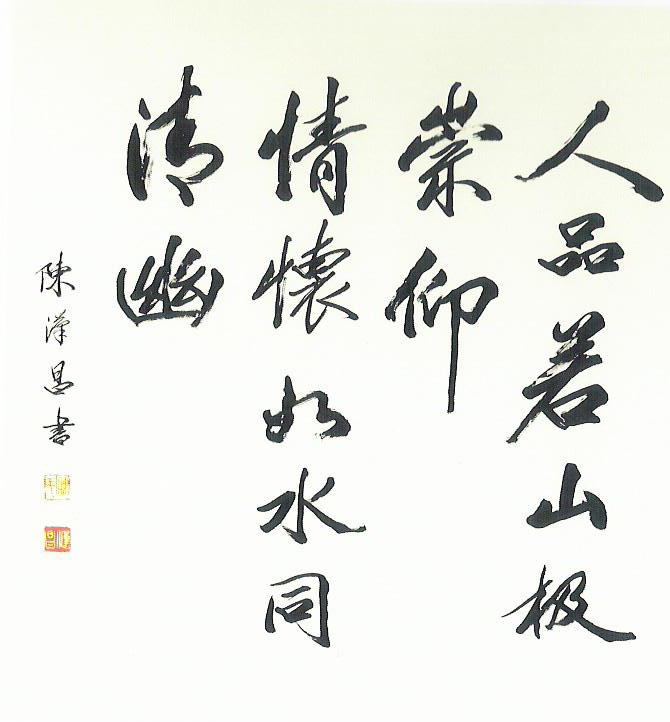 人品若山极
崇仰
情懷如水同
清幽
陳漢昌書